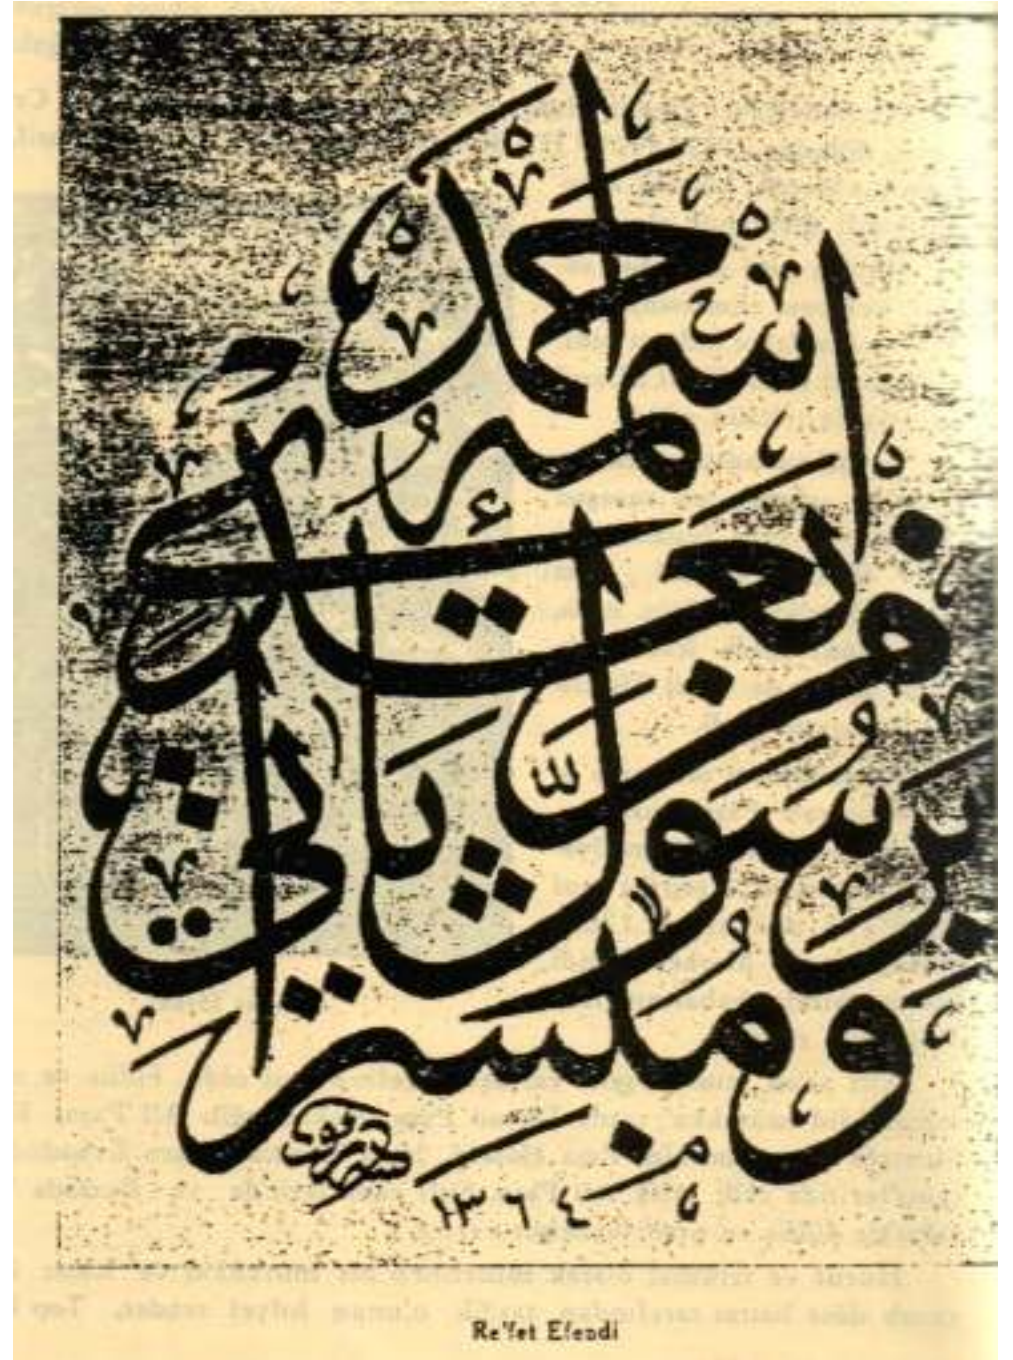 ومبشرا
برسول يأتي
من بعدي
اسمه
أحمد
١٣٦٤
Re'fet Efendi